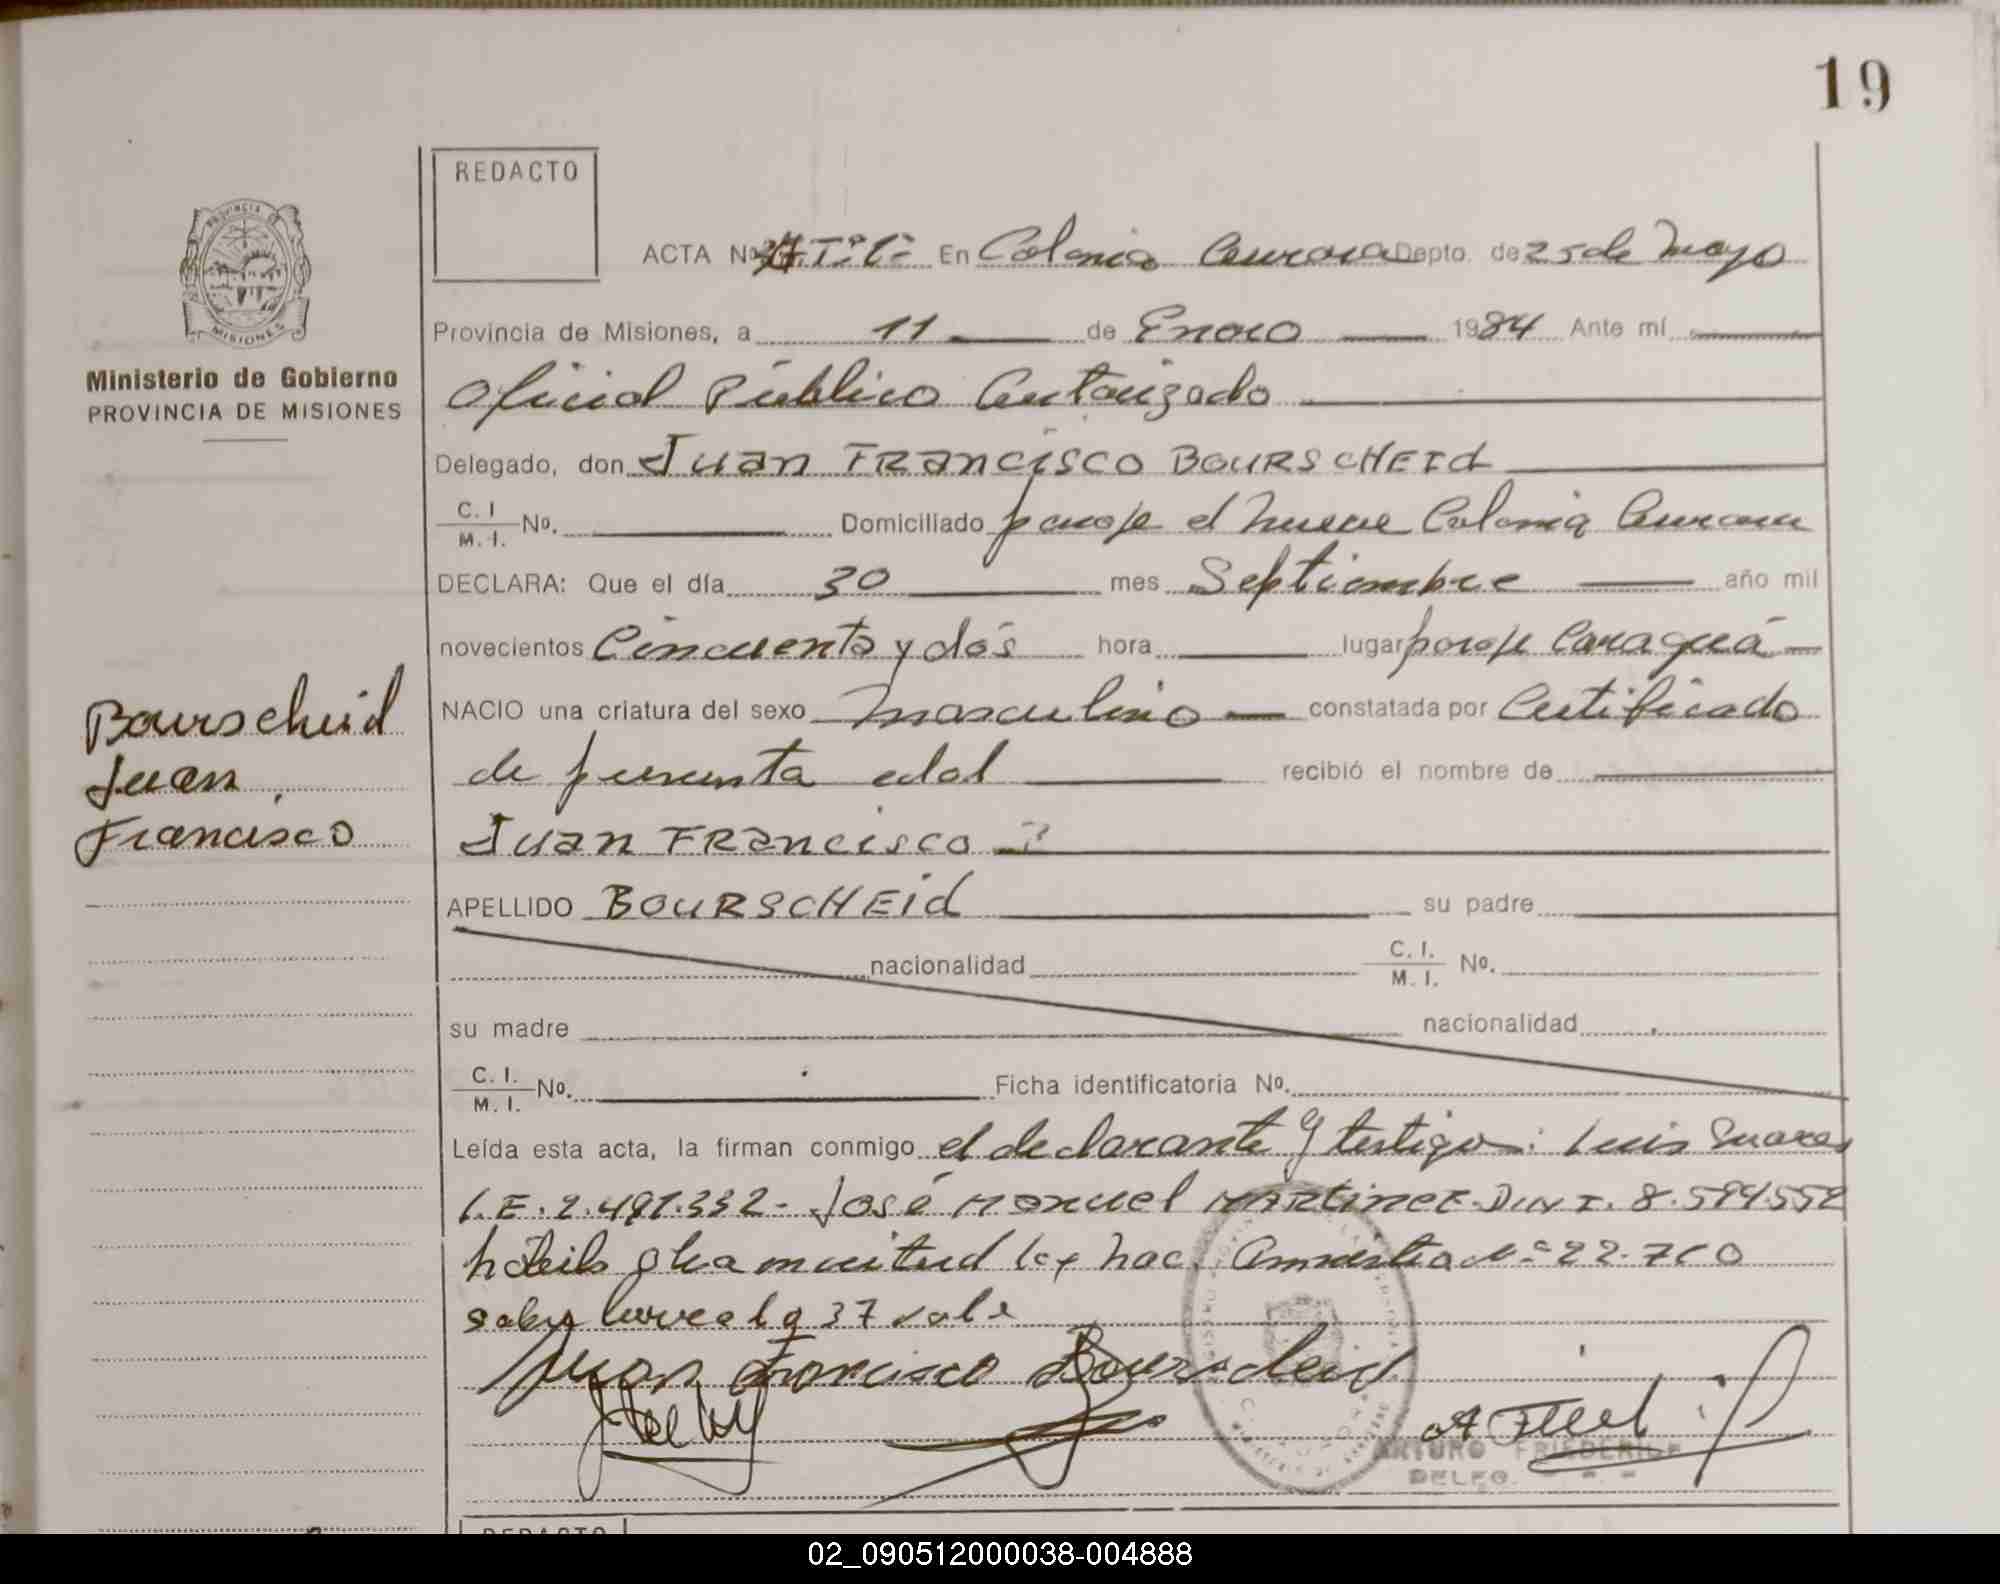 19
REDACTO
PROVINCIA DE
MISIONES
Ministerio de Gobierno
PROVINCIA DE MISIONES
ACTA Nº 37 T: I: En Colonia Aurora Depto. de 25 de Mayo
Provincia de Misiones, a 11 de Enero 1984 Ante mí
Oficial Público Autorizado
Delegado, don Juan FRANCISCO BOURSCHEId
C. I
M. I. Nº. Domiciliado paraje el nueve Colonia Aurora
DECLARA: Que el día 30 mes Septiembre año mil
novecientos Cincuenta y dós hora lugar paraje Caraguá
NACIO una criatura del sexo masculino constatada por Certificado
de presunta edad recibió el nombre de
Juan FRANCISCO
Bourscheid
Juan
Francisco
APELLIDO BOURSCHEId su padre
nacionalidad C. I.
M. I. Nº.
su madre nacionalidad
C. I.
M. I. Nº. Ficha identificatoria Nº.
Leída esta acta, la firman conmigo el declarante y testigos: Luis Suares
José Manuel MARTINEZ D.N.I. 8.594.552
ley nac. Amnistia Nº 22.
37 vale
Juan Francisco Bourscheid
ARTURO FRIEDERICH
DELEG.
REDACTO
02_090512000038-004888